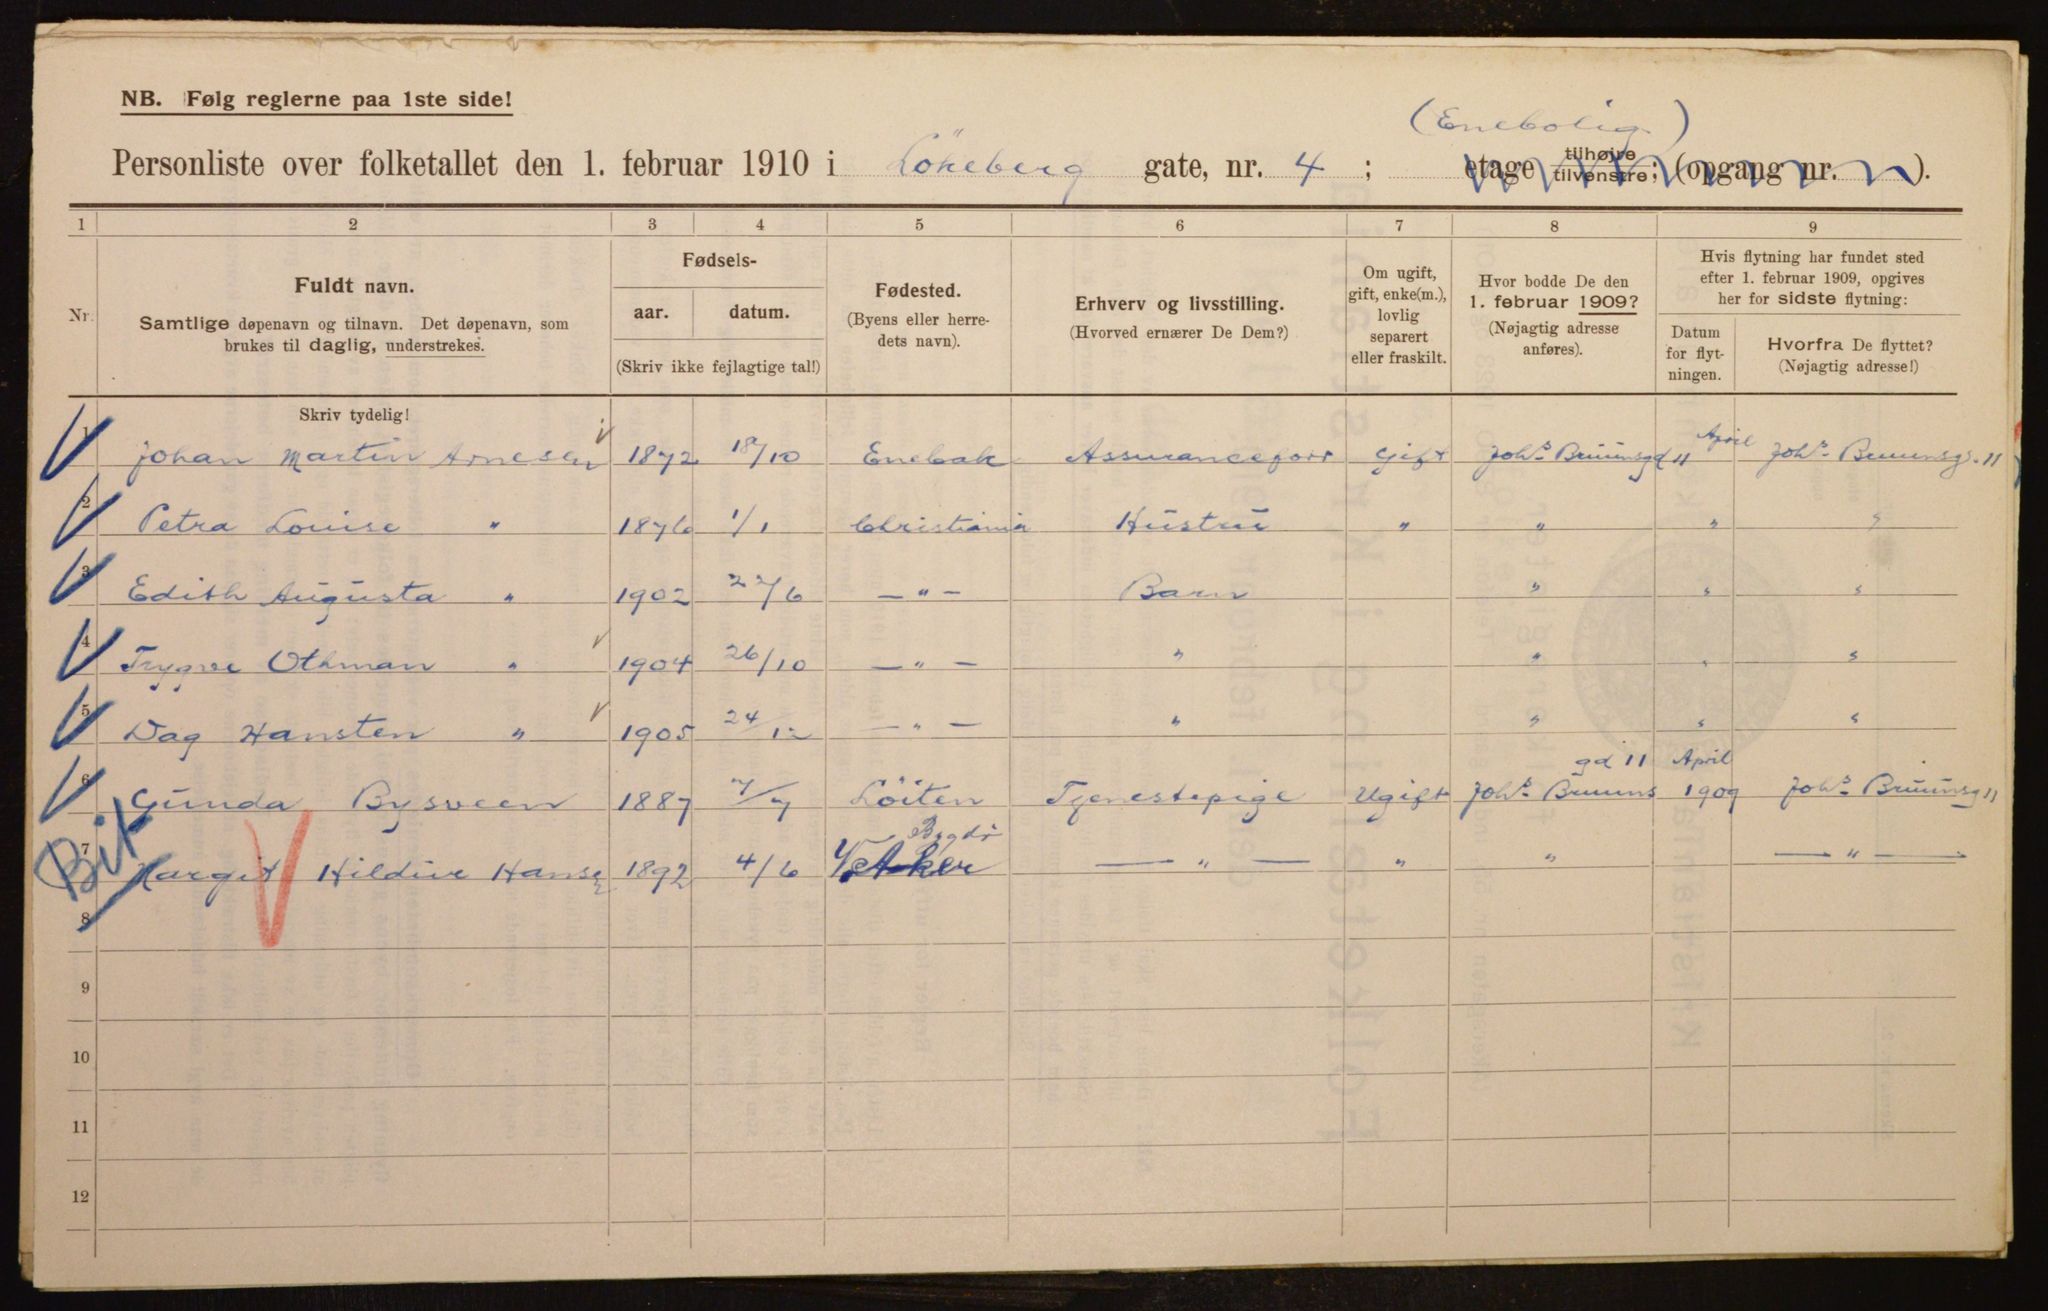 NB. Følg reglerne paa 1ste side!
(Enebolig.)
Personliste over folketallet den 1. februar 1910 i Lökeberg gate, nr. 4 ; etage tilhøjre tilvenstre; (opgang nr. ).
1 2 3 4 5 6 7 8 9
Nr.
Fuldt navn.
Samtlige døpenavn og tilnavn. Det døpenavn, som
brukes til daglig, understrekes.
Fødsels-
aar. datum.
(Skriv ikke fejlagtige tal!)
Fødested.
(Byens eller herre-
dets navn).
Erhverv og livsstilling.
(Hvorved ernærer De Dem?)
Om ugift,
gift, enke(m.),
lovlig
separert
eller fraskilt.
Hvor bodde De den
1. februar 1909?
(Nøjagtig adresse
anføres).
Hvis flytning har fundet sted
efter 1. februar 1909, opgives
her for sidste flytning:
Datum
for flyt-
ningen.
Hvorfra De flyttet?
(Nøjagtig adresse!)
Skriv tydelig!
1 Johan Martin Arnesen 1872 18/10 Enebak Assuranceforr Gift Johs Bruunsgd 11 April Johs Bruunsg. 11
2 Petra Louise " 1876 1/1 Christiania Hustru " " " "
3 Edith Augusta " 1902 22/6 — " — Barn " " "
4 Trygve Othman " 1904 26/10 — " — " " " "
5 Dag Hansten " 1905 24/12 — " — " " " "
6 Gunda Bysveen 1887 7/7 Löiten Tjenestepige Ugift Johs Bruuns gd 11 April 1909 Johs Bruunsg 11
Bit
7 Margit Hildive Hansen 1892 4/6 V Aker Bygdö — " — " " — " —
8
9
10
11
12